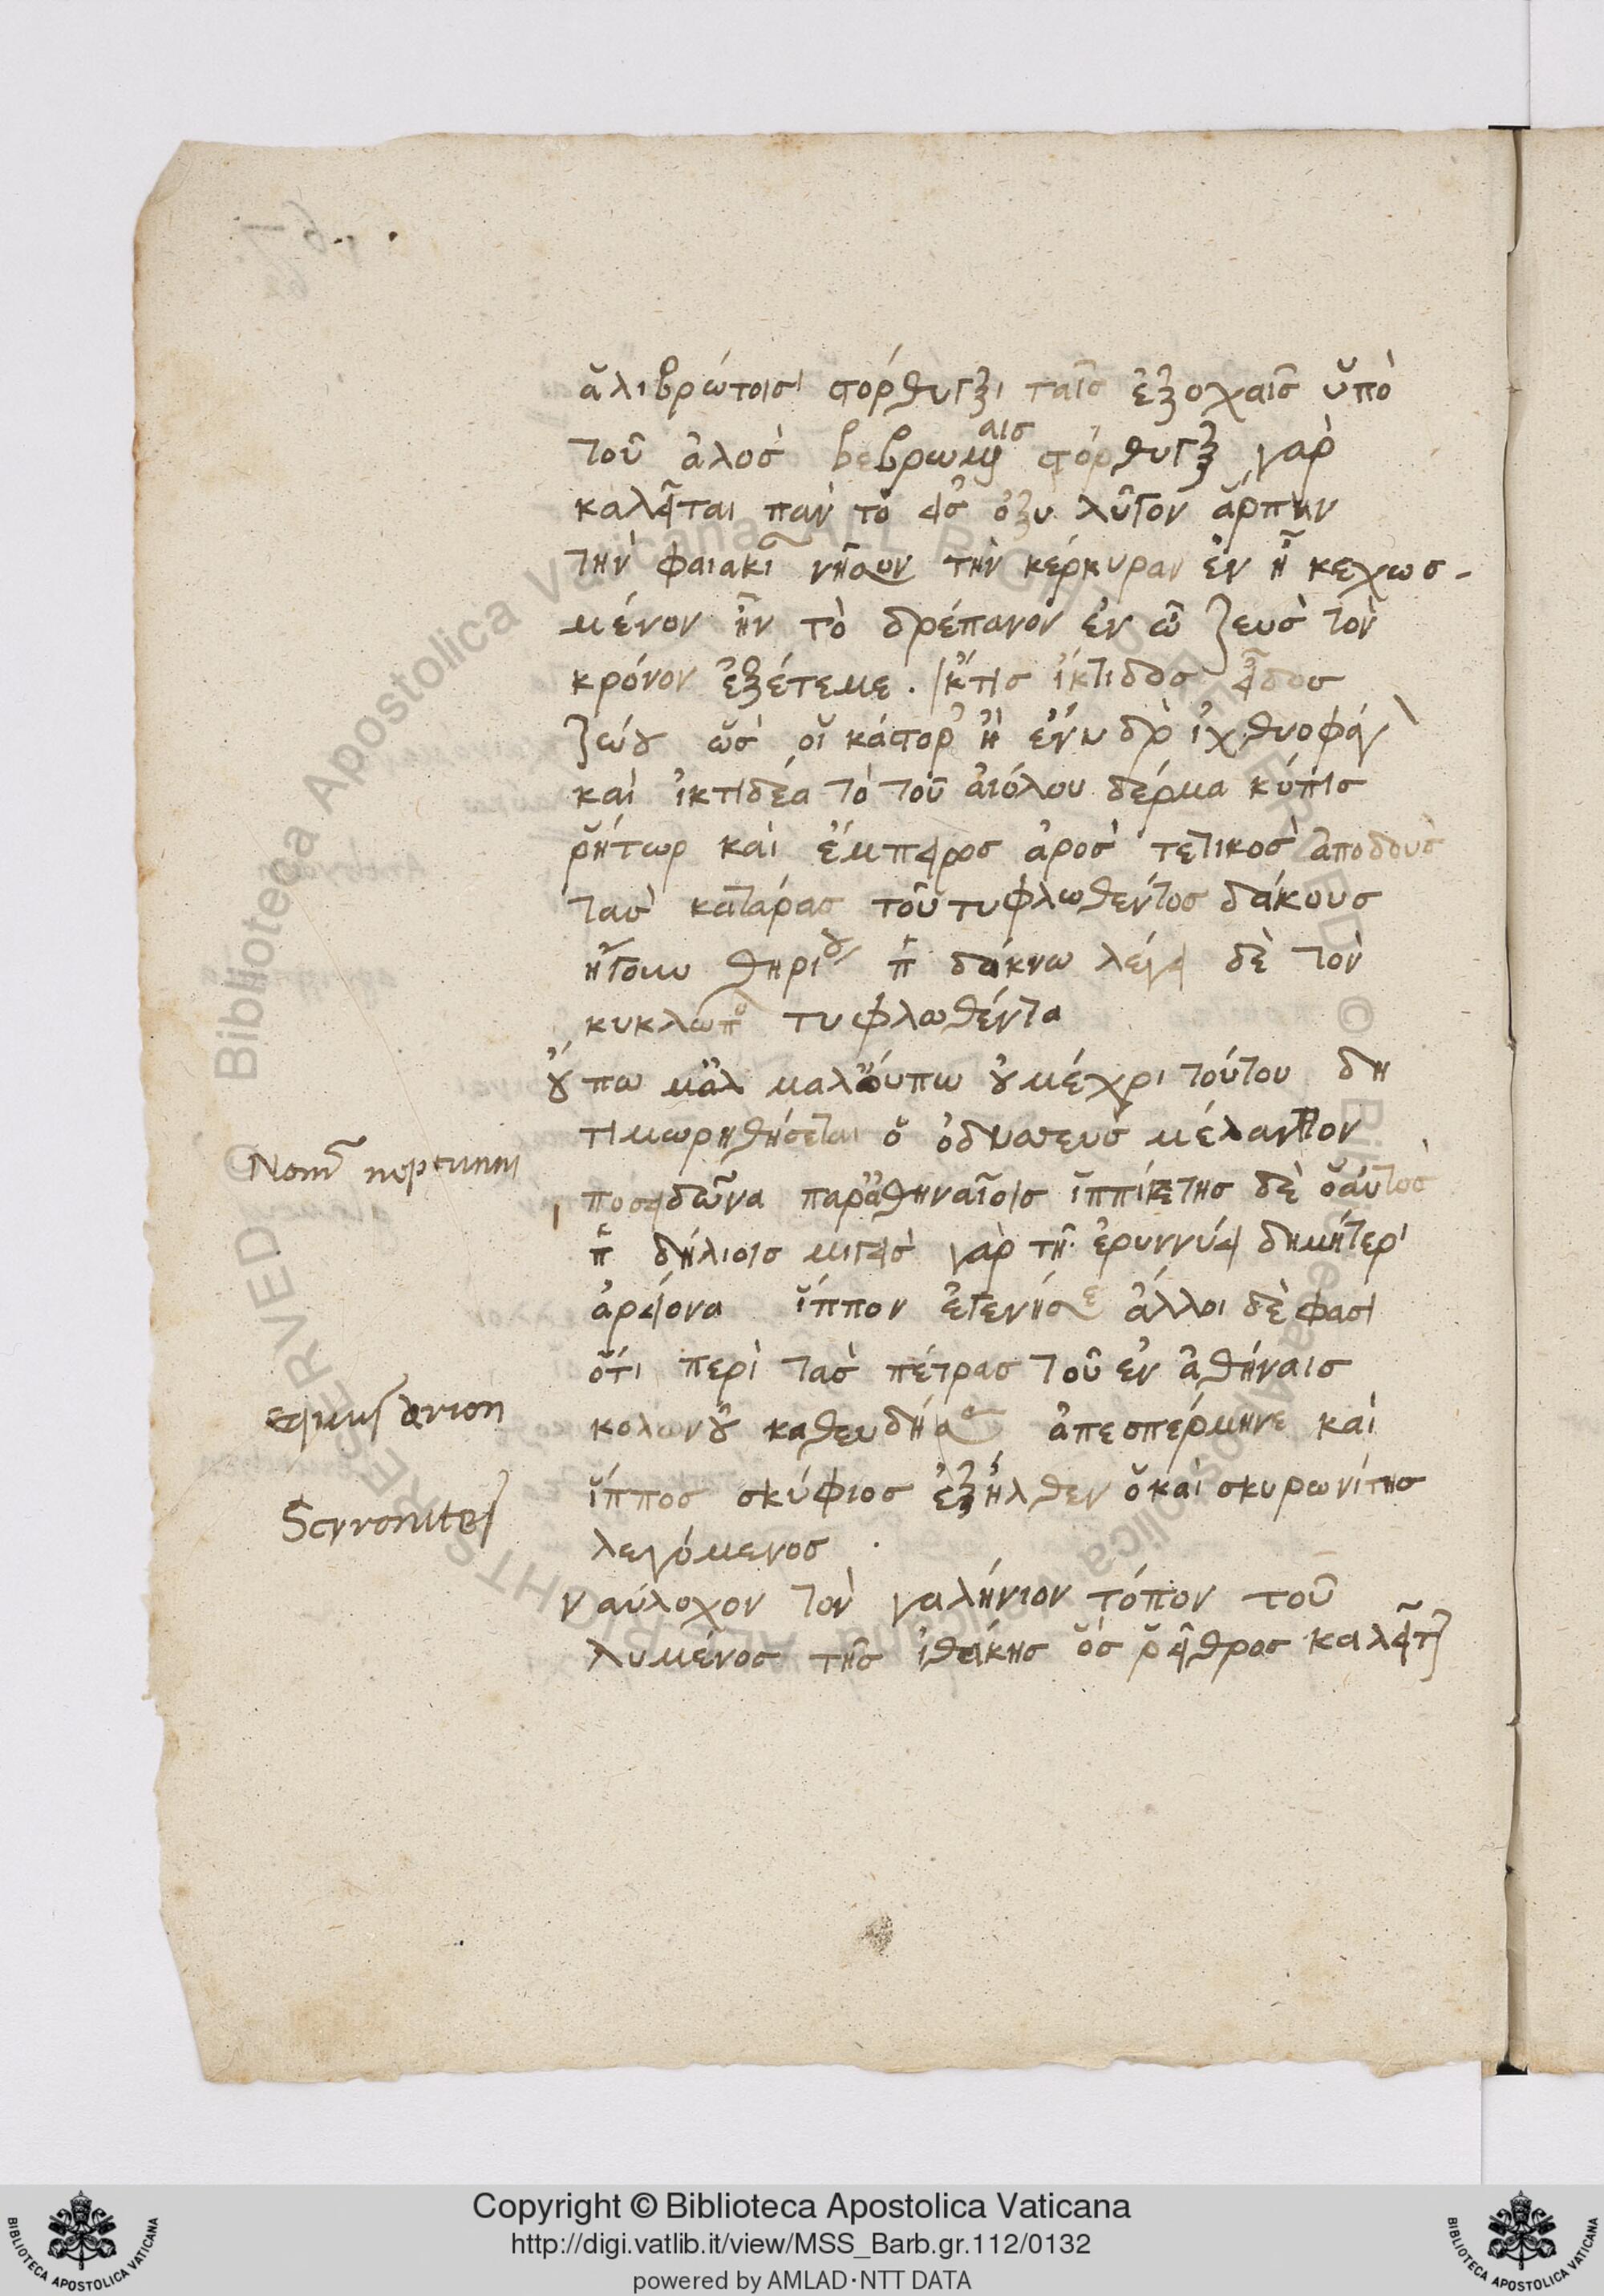 ἁλιβρώτοισι στόρθυγξι ταῖς ἐξοχαῖς ὑπὸ
τοῦ ἁλὸς βεβρωμέναις στόρθυγξ γὰρ
καλεῖται πᾶν τὸ εἰς ὀξὺ λῆγον ἅρπην
τὴν φαιακι νῆσον τὴν κέρκυραν ἐν ἧ κεχωσ-
μένον ἦν τὸ δρέπανον ἐν ὧ ζεὺς τὸν
κρόνον ἐξέτεμε. ἴκτις ἴκτιδος εἶδος
ζώου ὡς οἱ κάστορ ἢ ἐνυδρ ἰχθυοφάγ
καὶ ἰκτιδέα τὸ τοῦ αἰόλου δέρμα κόπις
ῥήτωρ καὶ ἔμπειρος
τὰς κατάρας τοῦ τυφλωθέντος δάκους
ἤτοι θηρίου π δάκνω λέγει δὲ τὸν
κυκλωπ τυφλωθέντα
οὔπω μάλ οὔπω οὐ μέχρι τούτου δὴ
τιμωρηθήσεται ὁ ὀδυσσεὺς μέλανθον
Nom neptunni
ποσειδῶνα παρ ἀθηναίοις ἱππηγέτης δὲ ὁ αὐτὸς
π δήλιοις μιγεὶς γὰρ τῇ ἐρυννύει δημήτερι
ἀρείονα ἵππον ἐγέννησε ἄλλοι δὲ φασι
ὅτι περὶ τὰς πέτρας τοῦ ἐν ἀθήναις
equus arion
κολωνοῦ καθευδήσας ἀπεσπέρμηνε καὶ
ἵππος σκύφιος ἐξῆλθεν ὁ καὶ σκυρωνίτης
Scyronites
λεγόμενος .
ναύλοχον τὸν γαλήνιον τόπον τοῦ
λυμένος τῆς ἰθάκης ὃς ῥεῖθρος καλεῖτ
Copyright © Biblioteca Apostolica Vaticana
http://digi.vatlib.it/view/MSS_Barb.gr.112/0132
powered by AMLAD·NTT DATA
BIBLIOTECA APOSTOLICA VATICANA
BIBLIOTECA APOSTOLICA VATICANA